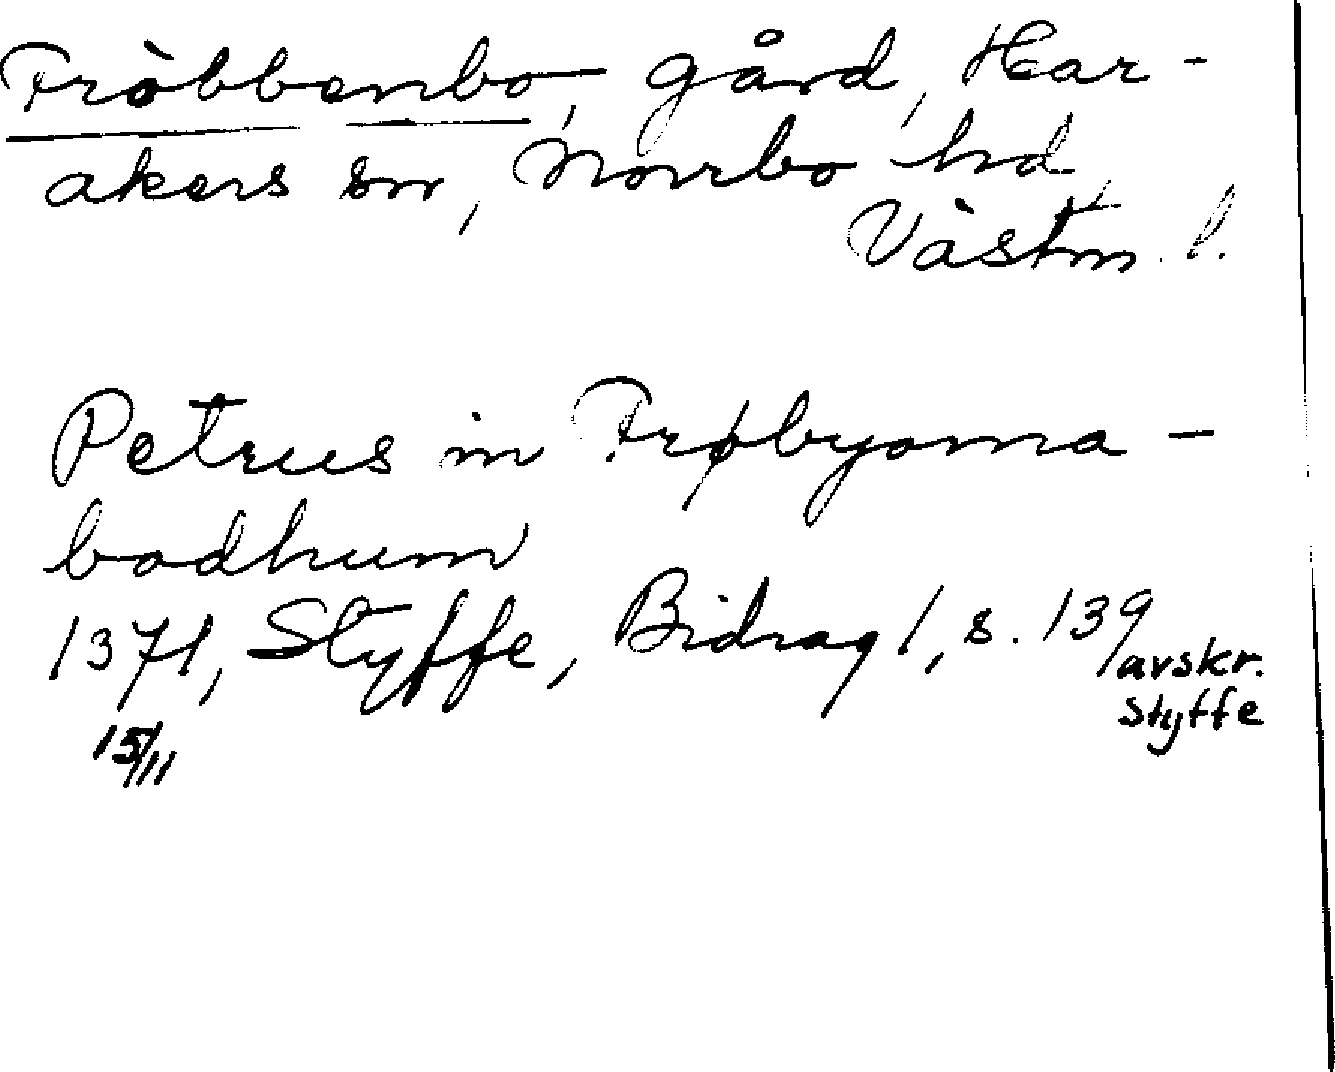 Fröbbenbo, gård, Har-
akers sn, Norrbo hd,
Västm. l.
Petrus in Frøbyoma-
bodhum
1371, Styffe, Bidrag 1, s. 139
avskr.
Styffe
15/11